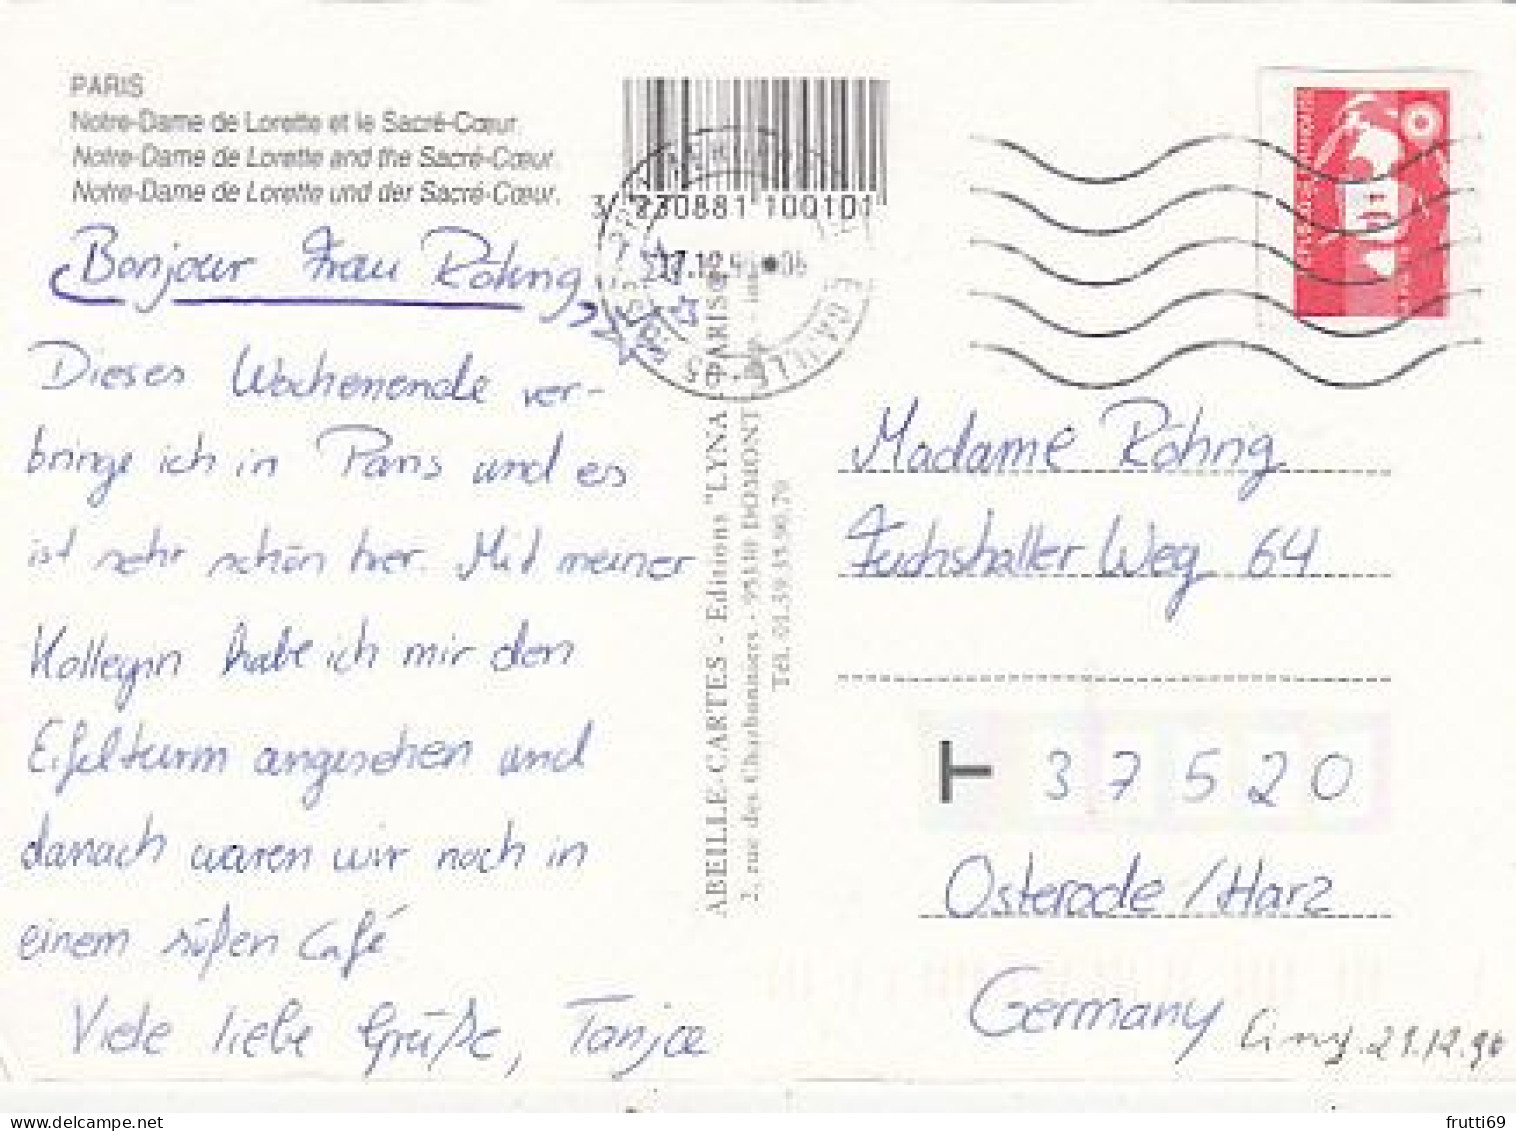 PARIS
Notre-Dame de Lorette et le Sacré-Cœur.
Notre-Dame de Lorette and the Sacré-Cœur.
Notre-Dame de Lorette und der Sacré-Cœur.
3 230881 100101
Bonjour Frau Röhrig,
Dieses Wochenende ver-
bringe ich in Paris und es
ist sehr schön hier. Mit meiner
Kollegin habe ich mir den
Eifelturm angesehen und
danach waren wir noch in
einem süßen Café.
Viele liebe Grüße, Tanja
ABEILLE-CARTES - Editions "LYNA - PARIS"
2, rue des Charbonniers - 95330 DOMONT
Tél. 01.39.35.90.70
Madame Röhrig
Fuchshaller Weg 64
T 37520
Osterode / Harz
Germany
21.12.96
frutti69